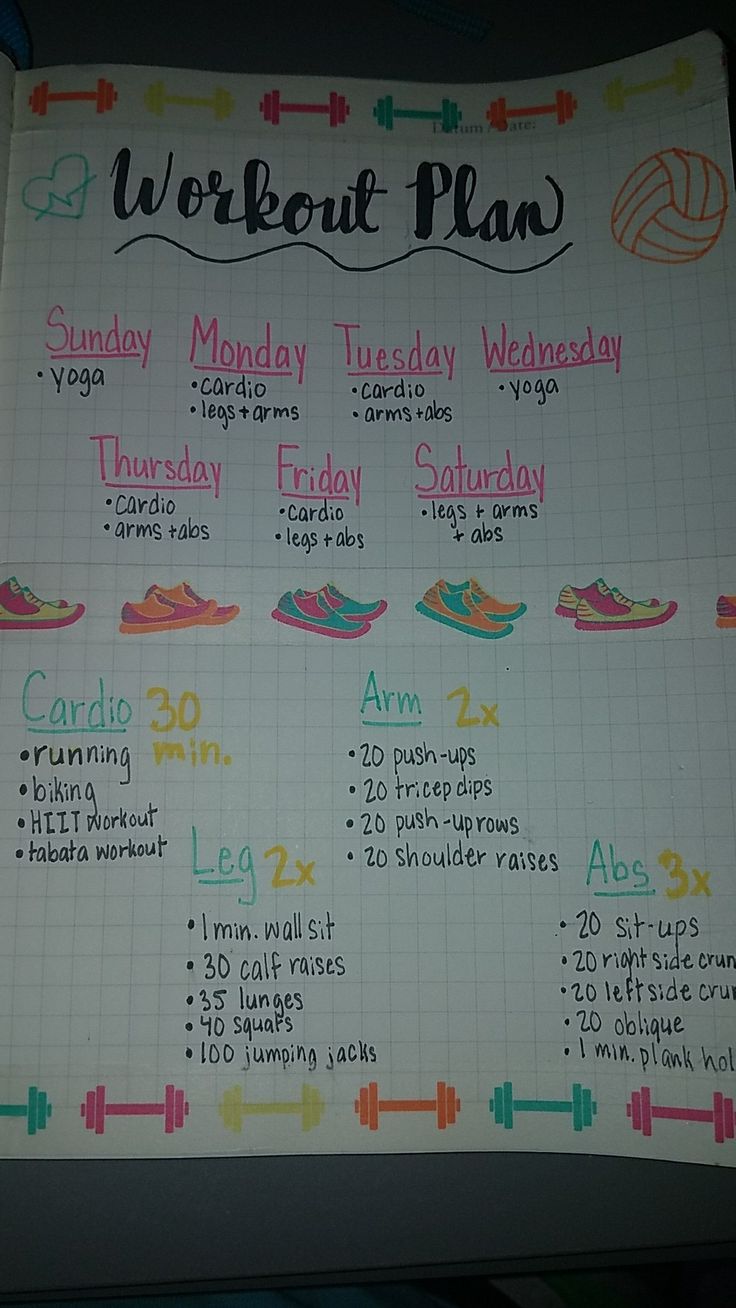 Datum / Date:
Workout Plan
Sunday Monday Tuesday Wednesday
• yoga
• cardio
• legs + arms
• cardio
• arms + abs
• yoga
Thursday Friday Saturday
• cardio
• arms + abs
• cardio
• legs + abs
• legs + arms
+ abs
Cardio 30
min.
• running
• biking
• HIIT workout
• tabata workout
Arm 2x
• 20 push-ups
• 20 tricep dips
• 20 push-up rows
• 20 shoulder raises
Leg 2x
• 1 min. wall sit
• 30 calf raises
• 35 lunges
• 40 squats
• 100 jumping jacks
Abs 3x
• 20 sit-ups
• 20 right side crun
• 20 left side cru
• 20 oblique
• 1 min. plank hol